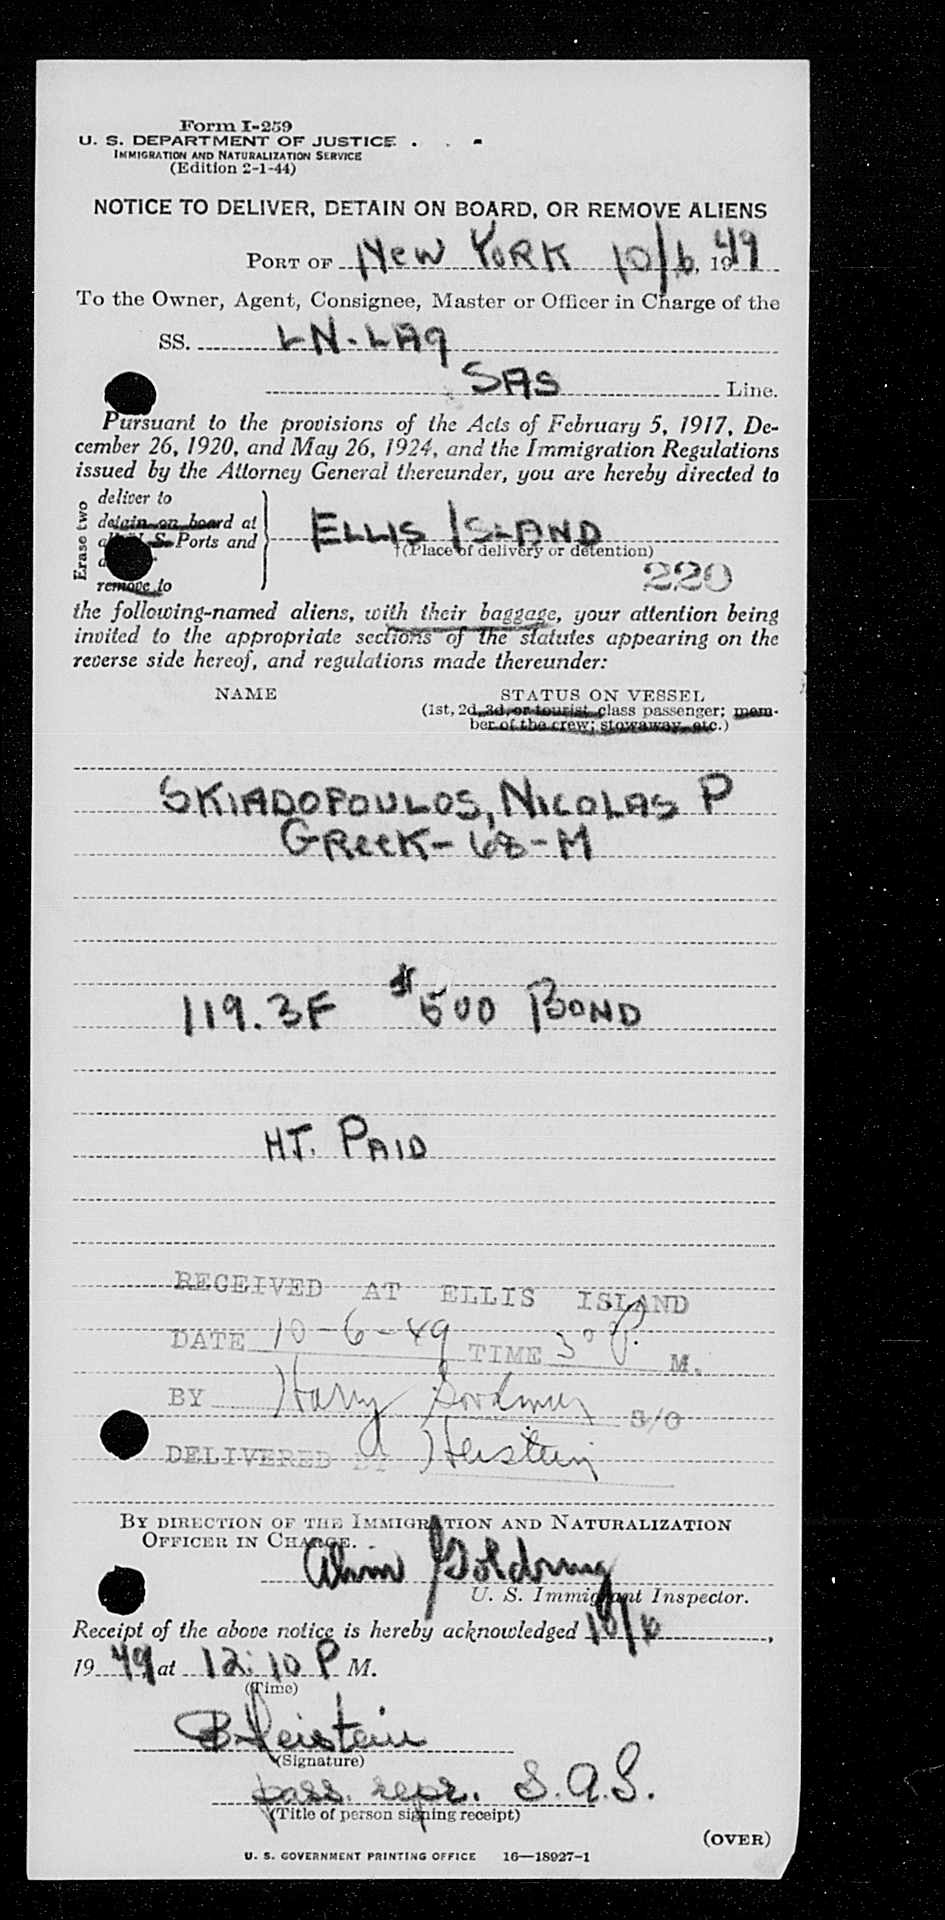 Form I-259
U. S. DEPARTMENT OF JUSTICE
IMMIGRATION AND NATURALIZATION SERVICE
(Edition 2-1-44)
NOTICE TO DELIVER, DETAIN ON BOARD, OR REMOVE ALIENS
PORT OF NEW YORK 10/6, 1949
To the Owner, Agent, Consignee, Master or Officer in Charge of the
SS. LN-LAG
SAS Line.
Pursuant to the provisions of the Acts of February 5, 1917, De-
cember 26, 1920, and May 26, 1924, and the Immigration Regulations
issued by the Attorney General thereunder, you are hereby directed to
Erase two
deliver to
detain on board at
U. S. Ports and
remove to
ELLIS ISLAND
†(Place of delivery or detention)
220
the following-named aliens, with their baggage, your attention being
invited to the appropriate sections of the statutes appearing on the
reverse side hereof, and regulations made thereunder:
NAME STATUS ON VESSEL
(1st, 2d, 3d, or tourist class passenger; mem-
ber of the crew; stowaway, etc.)
SKIADOPOULOS, NICOLAS P
GREEK - 68 - M
119.3F $500 BOND
HT. PAID
RECEIVED AT ELLIS ISLAND
DATE 10-6-49 TIME 3 00 P. M.
BY Harry Goodman S/O
DELIVERED BY Heistein
BY DIRECTION OF THE IMMIGRATION AND NATURALIZATION
OFFICER IN CHARGE.
Goldring
U. S. Immigrant Inspector.
Receipt of the above notice is hereby acknowledged 10/6,
1949, at 12:10 P M.
(Time)
B Heistein
(Signature)
pass. repr. S.A.S.
(Title of person signing receipt)
(OVER)
U. S. GOVERNMENT PRINTING OFFICE 16—18927-1